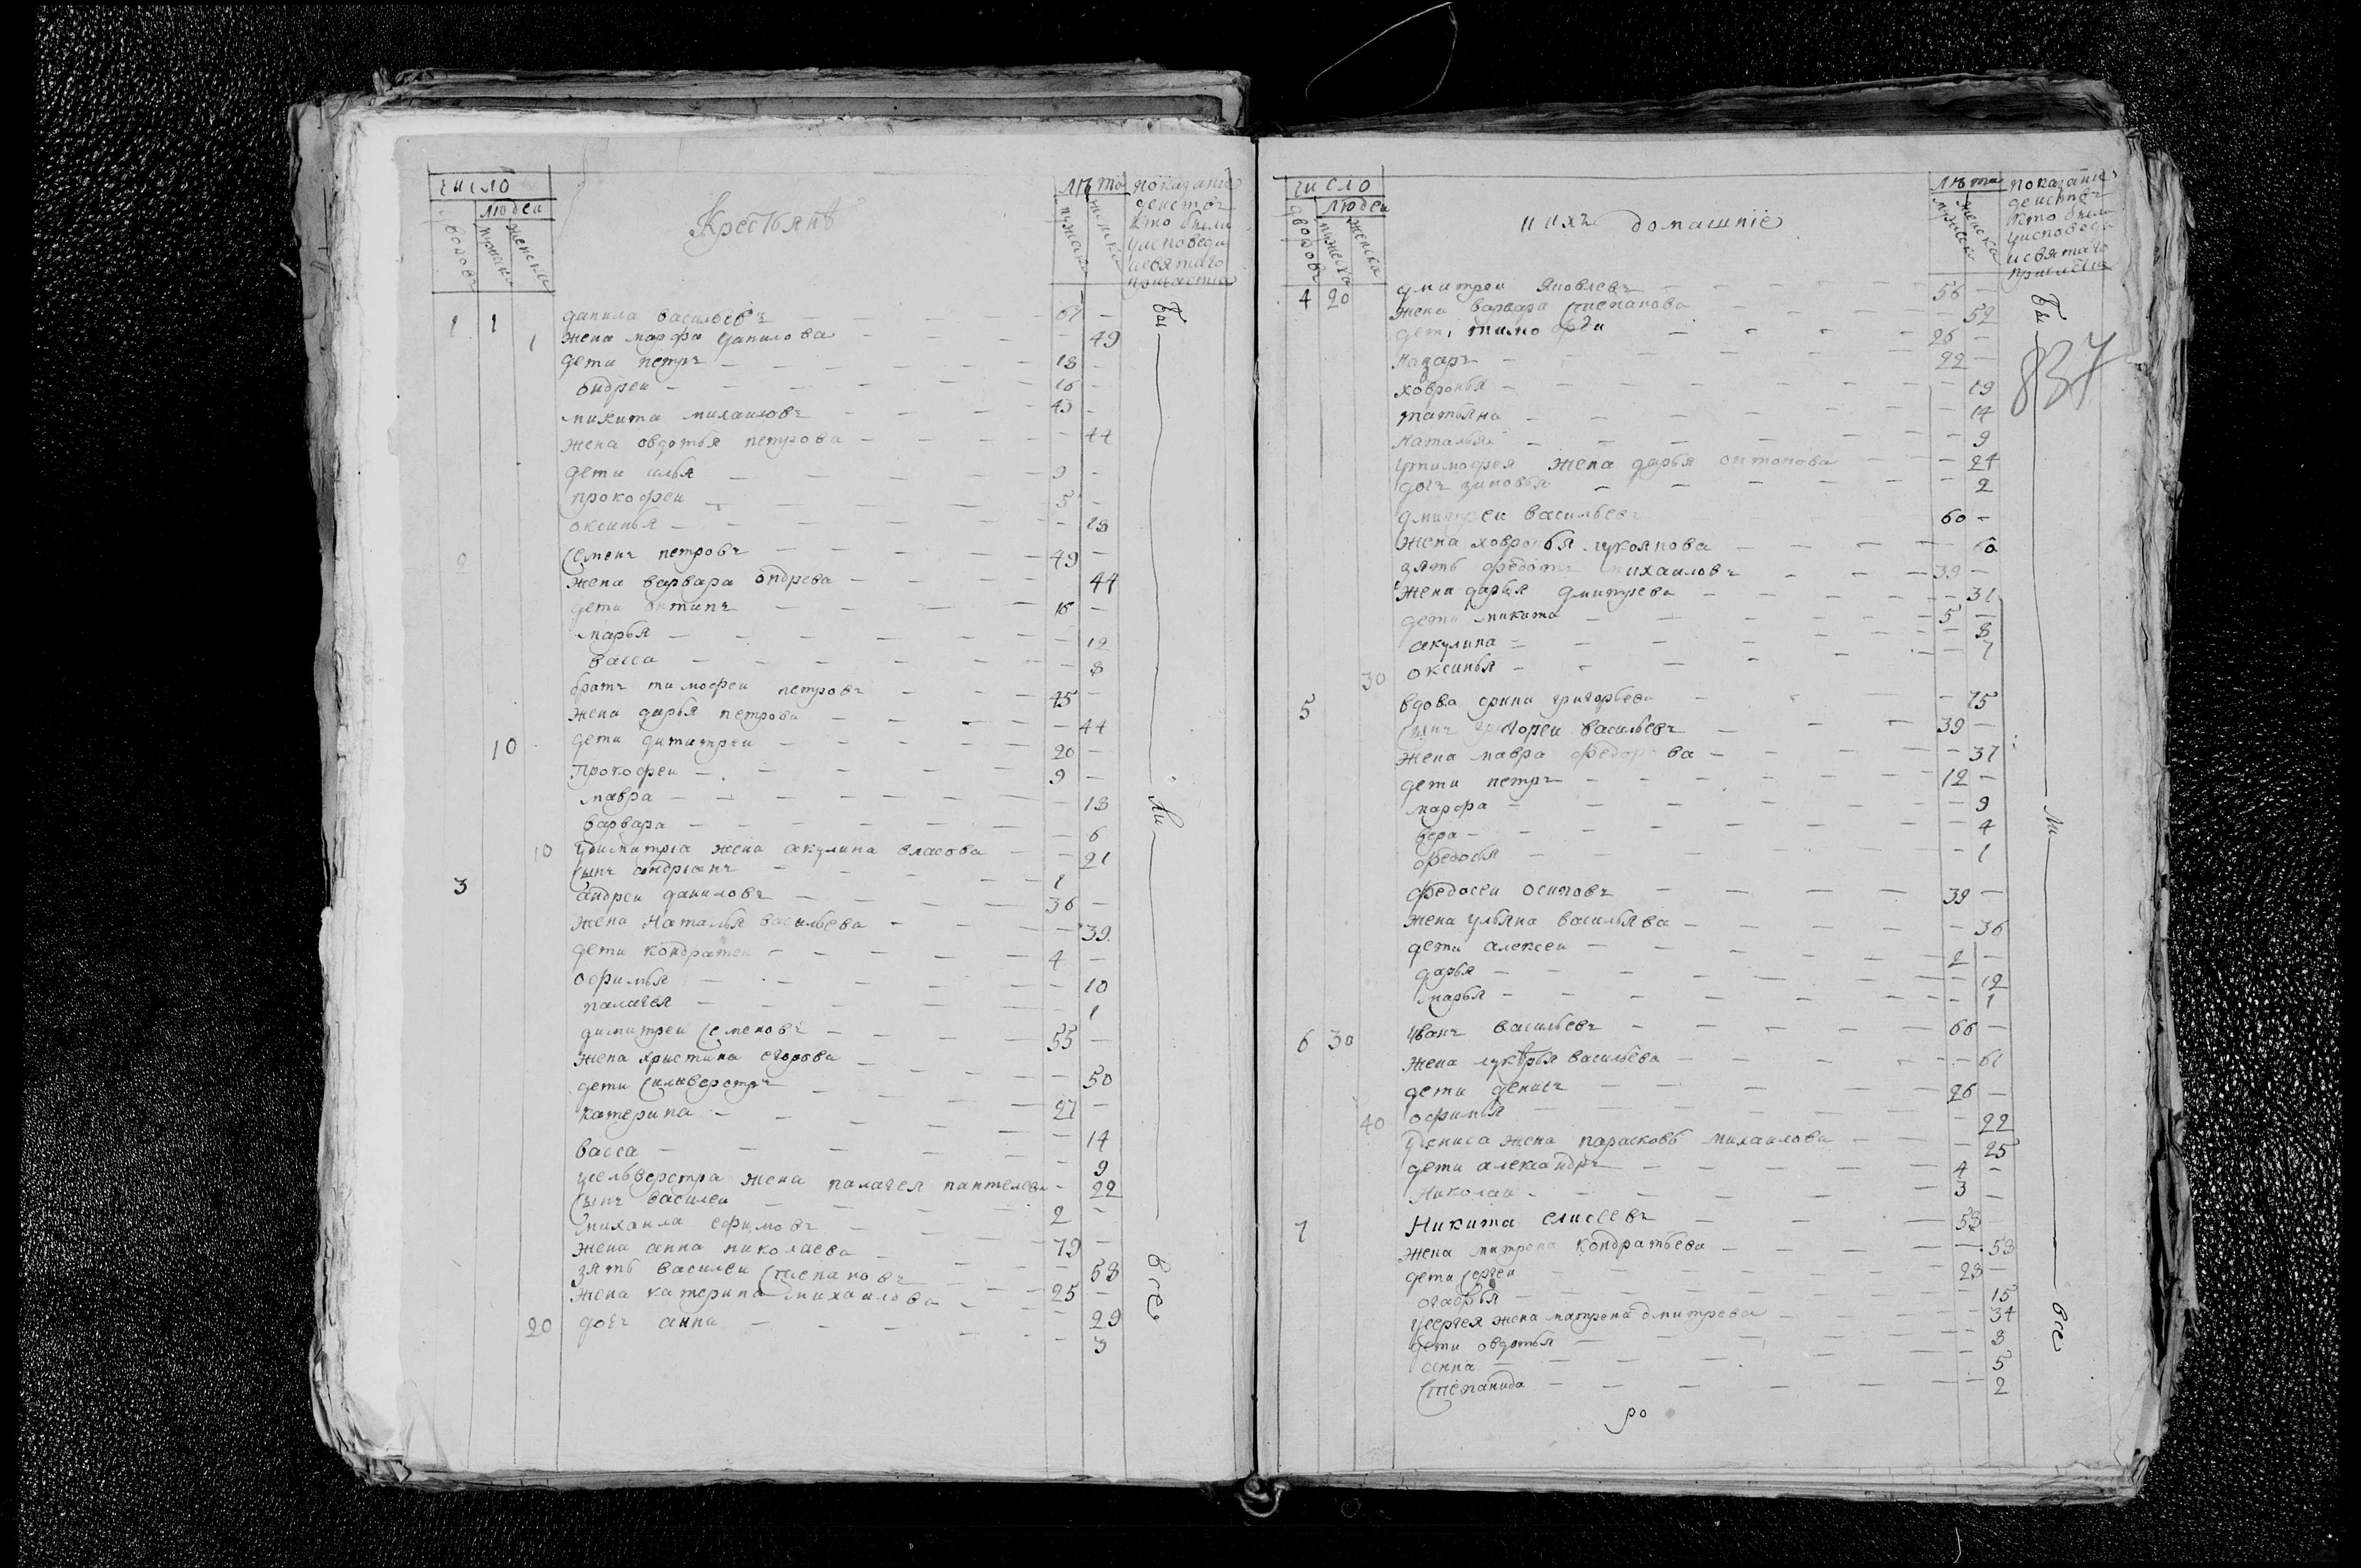 число
людеи
дворовъ
мужска
женска
Крестьянѣ
лѣта
мужска
женска
показаніе
деиствъ
кто были
уисповеди
исвятаго
причастия
1 1 данила васильевъ 61
1 жена марфа данилова 49
дети петръ 18
ондреи 16
микита михаиловъ 43
жена овдотья петрова 44
дети илья 9
прокофеи 5
оксинья 18
2 Семенъ петровъ 49
жена варвара ондрева 44
дети онтипъ 16
марья 12
васса 8
братъ тимофеи петровъ 45
жена дарья петрова 44
10 дети димитреи 20
Прокофеи 9
мавра 18
варвара 6
10 удимитрiа жена акулина власова 21
Сынъ андрiанъ 1
3 андреи даниловъ 36
жена Наталья васильева 39
дети кондратеи 4
офимья 10
палагея 1
димитреи Семеновъ 55
жена христина егорова 50
дети Силиверстръ 27
катерина 14
васса 9
усельверстра жена палагея пантелева 22
Сынъ василеи 2
михаила ефимовъ 79
жена анна николаева 58
зять василеи Степановъ 25
жена катерина михаилова 29
20 дочь анна 3
бы
ли
все
число
людеи
дворовъ
мужска
женска
иихъ домашнiе
лѣта
мужска
женска
показаніе
деиствъ
кто были
уисповеди
исвятаго
причастия
837
4 20 дмитреи яковлевъ 56
жена варвара Степанова 52
дети тимофеи 26
Назаръ 22
ховронья 19
татьяна 14
Наталья 9
утимофея жена дарья онтонова 24
дочь зиновья 2
дмитреи васильевъ 60
жена ховронья лукоянова 60
зять федотъ михаиловъ 39
жена дарья дмитрева 31
дети микита 5
акулина 8
30 оксинья 1
5 вдова фрина григорьева 75
Сынъ григореи васильевъ 39
жена мавра федорова 37
дети петръ 12
марфа 9
вера 4
федосья 1
федосеи осиповъ 39
жена ульяна васильява 36
дети алексеи 2
дарья 12
марья 1
6 30 иванъ васильевъ 66
жена лукѣрья васильева 61
дети денисъ 26
40 офимья 22
удениса жена парасковь михаилова 25
дети александръ 4
Николаи 3
7 Никита елисеевъ 58
жена матрена кондратьева 58
дети Сергеи 28
огафья 15
усергея жена матрена дмитрева 34
дети овдотья 8
анна 5
Степанида 2
бы
ли
все
ро